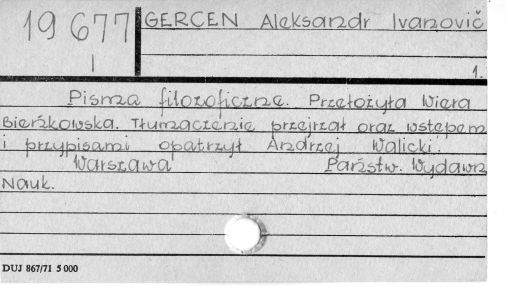 19 677
I
GERCEN Aleksandr Ivanovič
1.
Pisma filozoficzne. Przełożyła Wiera
Bieńkowska. Tłumaczenie przejrzał oraz wstępem
i przypisami opatrzył Andrzej Walicki.
Warszawa Państw. Wydawn
Nauk.
DUJ 867/71 5 000